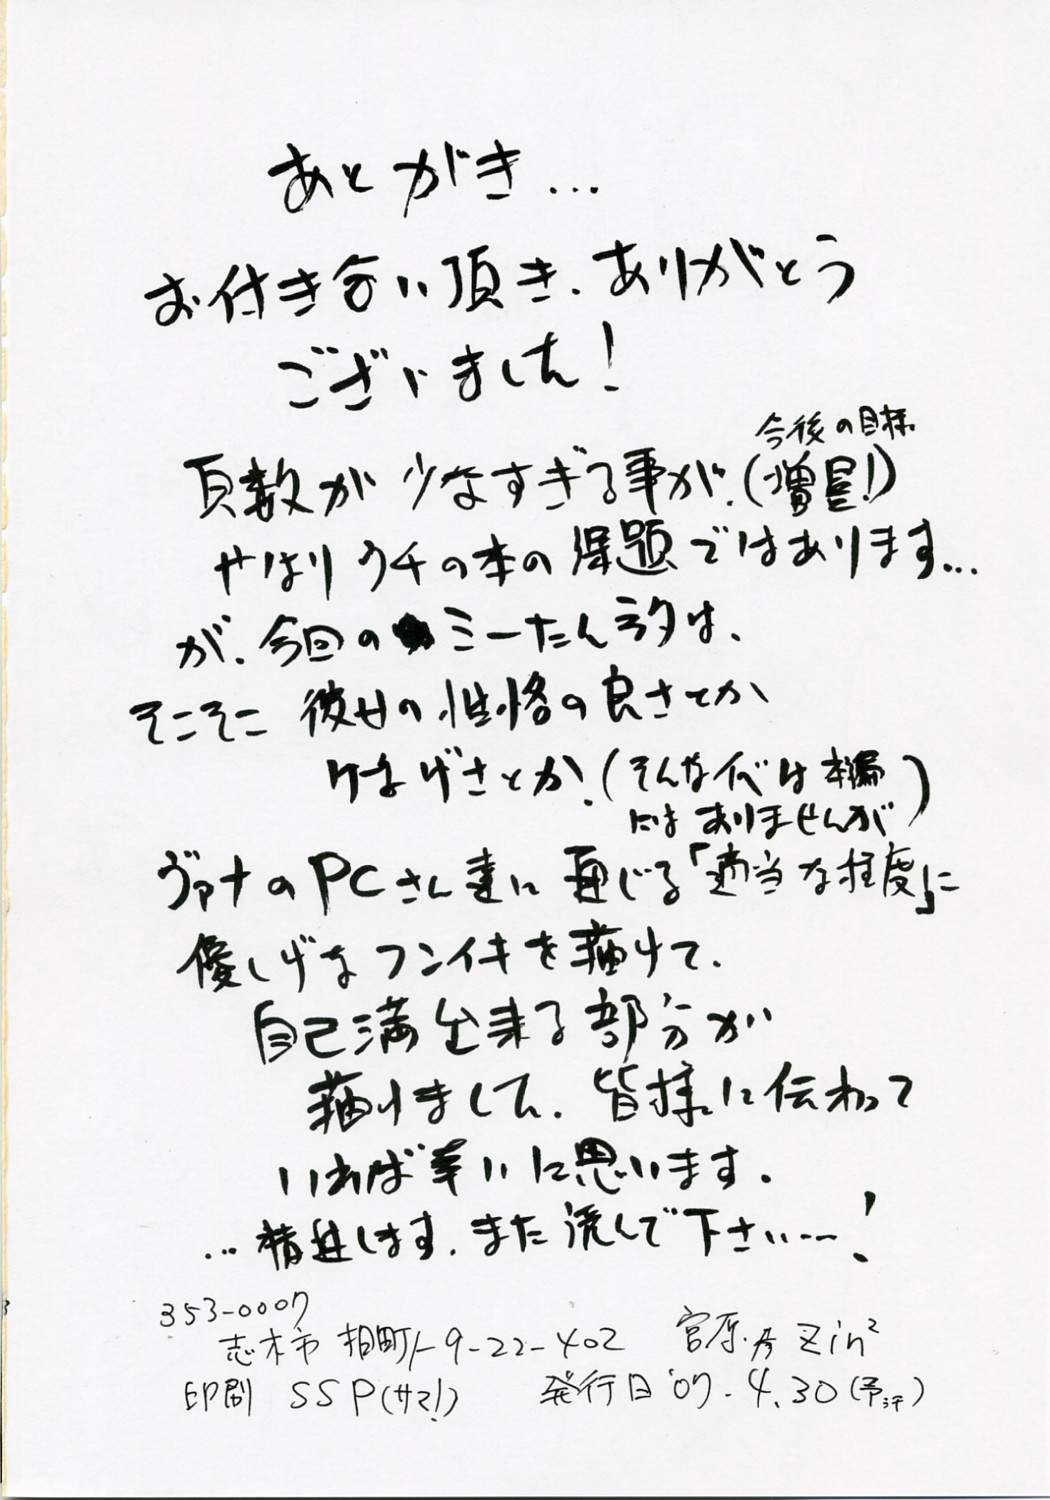 あとがき...
お付き合い頂き、ありがとう
ございました!
頁数が少なすぎる事が、(今後の目標 増量!)
やはりウチの本の課題ではあります...
が、今回のミーたんネタは、
そこそこ 彼女の性格の良さとか
けなげさとか、(そんな代は本編
にはありませんが)
ヴァナのPCさん達に通じる「適当な程度」に
優しげなフンイキを描けて、
自己満出来る部分が
描けました、皆様に伝わって
いれば幸いに思います.
...精進します、また読んで下さい...!
353-0007
志木市 柏町1-9-22-402 宮原 Zin²
印刷 SSP(サマ!) 発行日 '07.4.30(予定)